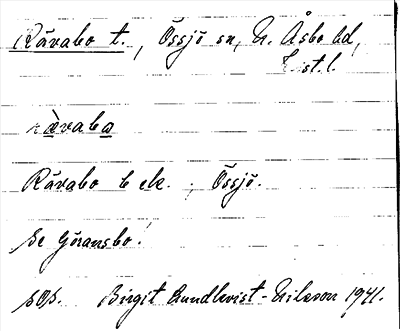 Rävabo t., Össjö sn, N. Åsbo hd,
Krist. l.
ràvaba
Rävabo b ek., Össjö.
Se Göransbo!
sOs. Birgit Lundkvist-Nilsson 1941.